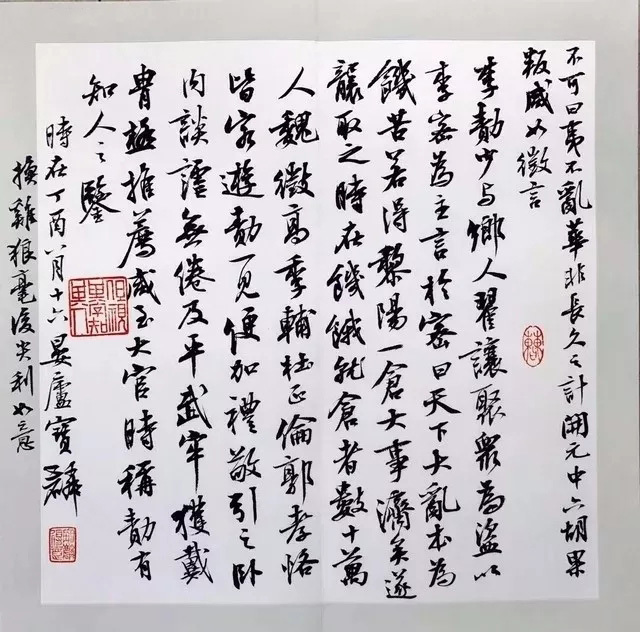 不可曰夷不亂華非長久之計開元中六胡果
叛咸如徵言
李勣少与鄉人翟讓聚眾為盜以
李密為主言於密曰天下大亂本為
饑苦若得黎陽一倉大事濟矣遂
襲取之時在饑餓就倉者數十萬
人魏徵高季輔杜正倫郭孝恪
皆客遊勣一見便加禮敬引之卧
内談謔無倦及平武牢獲戴
胄極推薦咸至大官時稱勣有
知人之鑒
時在丁酉八月十六晏廬寶麟
換雞狼毫後尖利如意